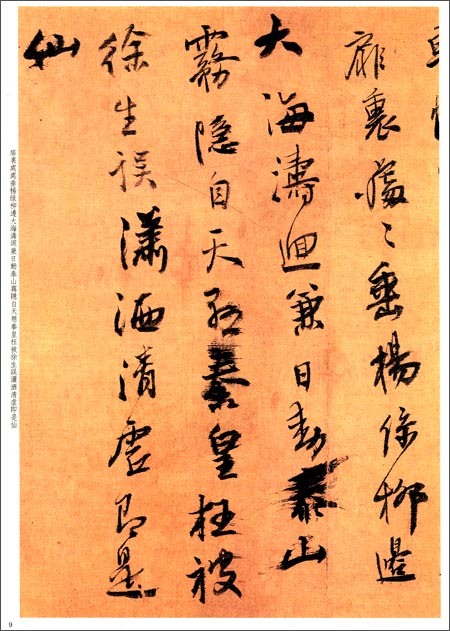 裏處々垂楊綠柳邊
大海濤迴兼日動泰山
霧隱自天秦皇枉被
徐生誤瀟洒清虛即是
仙
裏處處垂楊綠柳邊大海濤迴兼日動泰山霧隱自天秦皇枉被徐生誤瀟洒清虛即是仙
9